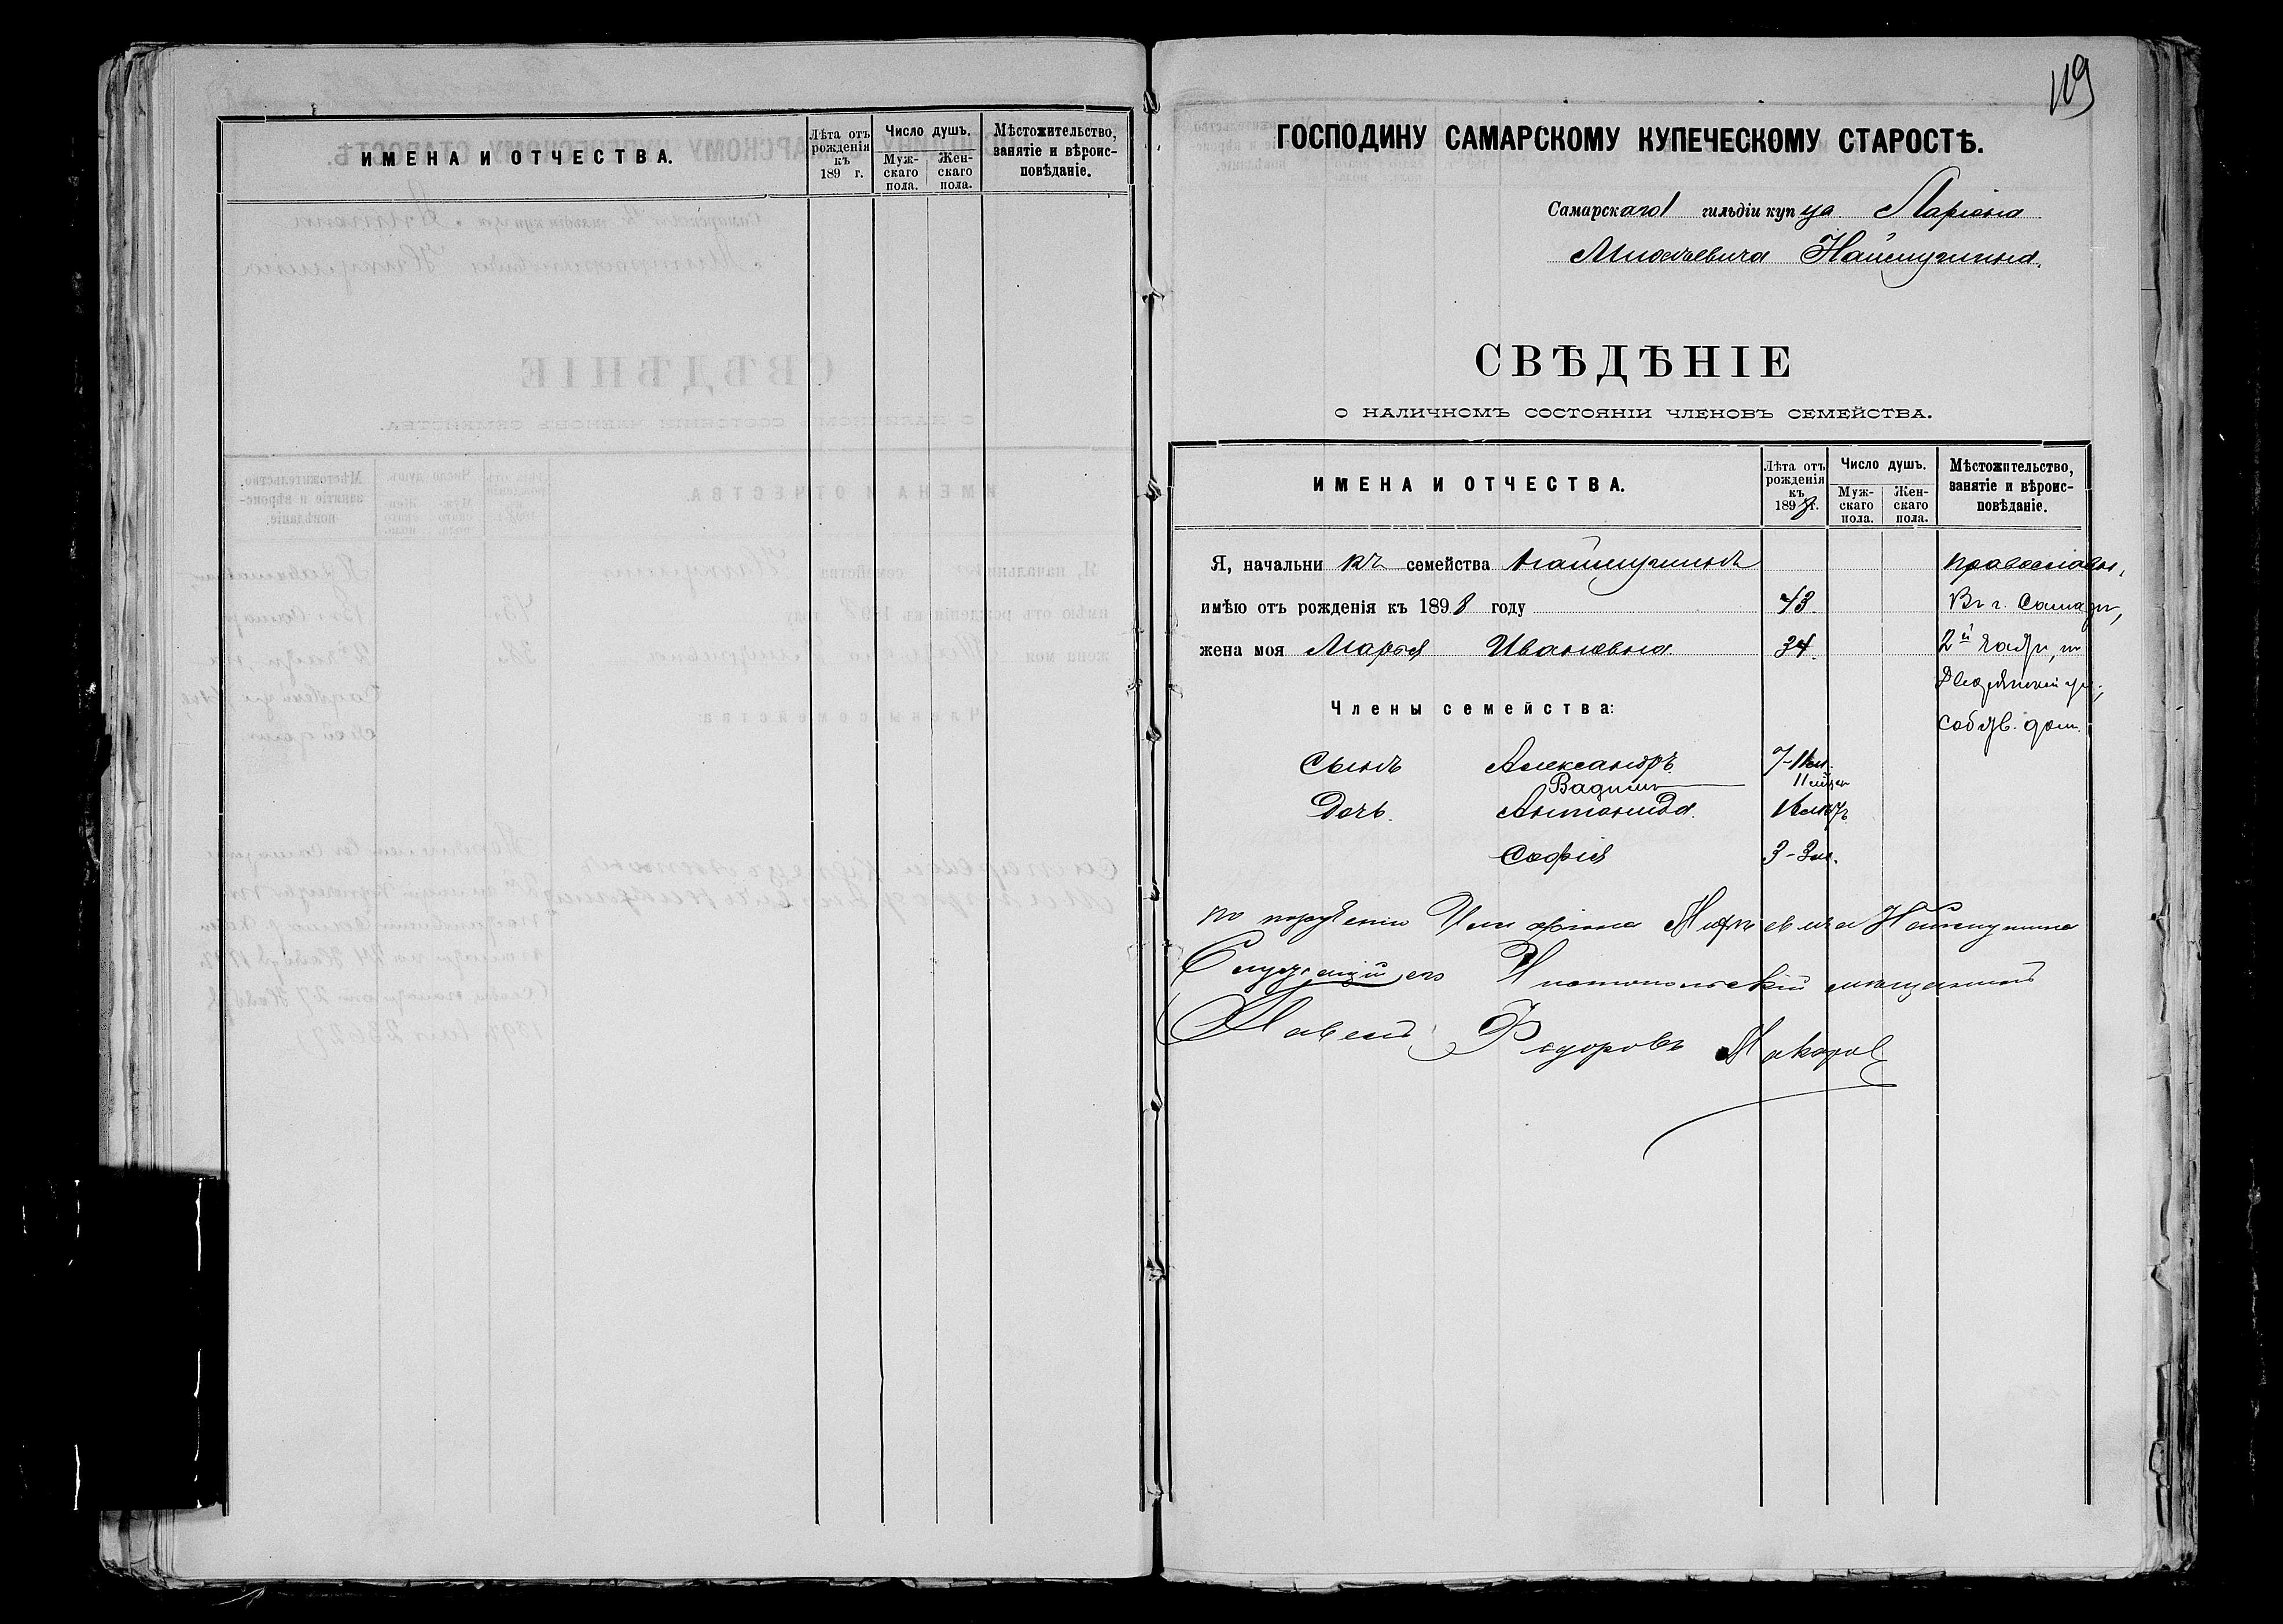 ИМЕНА И ОТЧЕСТВА.
Лѣта отъ рожденія къ 189 г.
Число душъ.
Муж-скаго пола.
Жен-скаго пола.
Мѣстожительство, занятіе и вѣроис-повѣданіе.
119
ГОСПОДИНУ САМАРСКОМУ КУПЕЧЕСКОМУ СТАРОСТѢ.
Самарскаго 1 гильдіи купца Ларіона
Наймушина.
СВѢДѢНІЕ
О НАЛИЧНОМЪ СОСТОЯНІИ ЧЛЕНОВЪ СЕМЕЙСТВА.
ИМЕНА И ОТЧЕСТВА.
Лѣта отъ рожденія къ 1898 г.
Число душъ.
Муж-скаго пола.
Жен-скаго пола.
Мѣстожительство, занятіе и вѣроис-повѣданіе.
Я, начальникъ семейства Наймушинъ православн.
имѣю отъ рожденія къ 1898 году 43. Въ г. Самарѣ,
жена моя Марья Ивановна 34. 2й части, по
Дворянской ул.,
Члены семейства:
собств. дом.
Сынъ Александръ
Вадимъ
Дочь. Антонида
Софія 3-3 м.
по порученію Илларіона Наймушина
Служащій его Чистопольскій мещанинъ
Павелъ Федоровъ Макаровъ